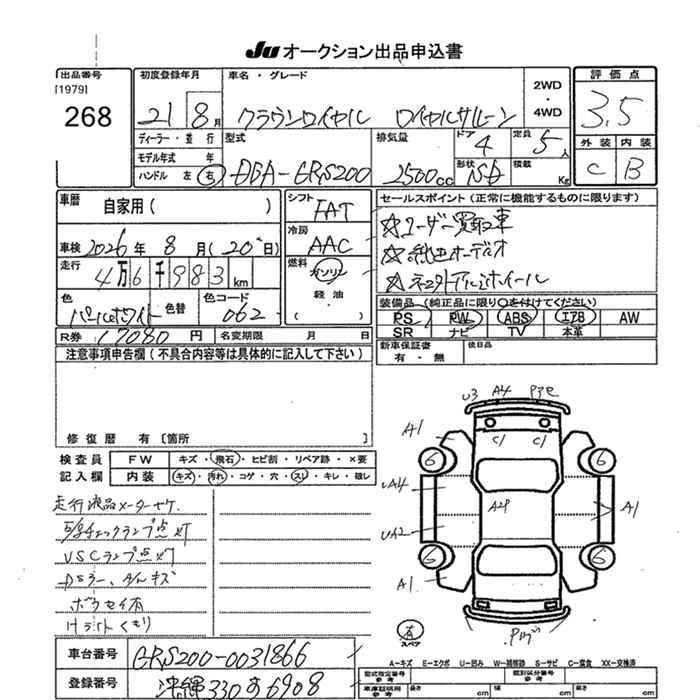 JU オークション出品申込書
出品番号
[1979]
268
初度登録年月
21 8月
車名・グレード
クラウンロイヤル ロイヤルサルーン
2WD
・
4WD
評価点
3.5
外装 内装
C B
ディーラー・並行
モデル年式 年
ハンドル 左 右
型式
DBA-GRS200
排気量
2500cc
ドア
4
形状
SD
定員
5人
積載
Kg
車歴
自家用( )
車検 2026年 8月(20日)
走行
4万6千983km
色
パールホワイト
色替
色コード
062
R券 17080円
名変期限 月 日
シフト
FAT
冷房
AAC
燃料
ガソリン
軽油
( )
セールスポイント(正常に機能するものに限ります)
☆ユーザー買取車
☆純正オーディオ
☆アルミホイール
装備品(純正品に限り○を付けてください)
PS PW ABS エアB AW
SR ナビ TV 本革
新車保証書
有・無
後日品
注意事項申告欄(不具合内容等は具体的に記入して下さい)
修復歴 有〔箇所 〕
検査員
記入欄
FW キズ・飛石・ヒビ割・リペア跡・×要
内装 キズ・汚れ・コゲ・穴・スレ・キレ・破レ
走行液晶メーターヤケ
チェックランプ点灯
VSCランプ点灯
キズ
ボウセイ有
Hライトくもり
U3 A4
A1
C1 C1
6 6
UA4
A24
UA2
A1
6 6
A1
有
スペア
A-キズ E-エクボ U-凹み W-補修跡 S-サビ C-腐食 XX-交換済
車台番号 GRS200-0031866
登録番号 沖縄330す6908
型式指定番号
参考
類別区分番号
参考
車庫証明用
参考
長さ cm 幅 cm 高さ cm